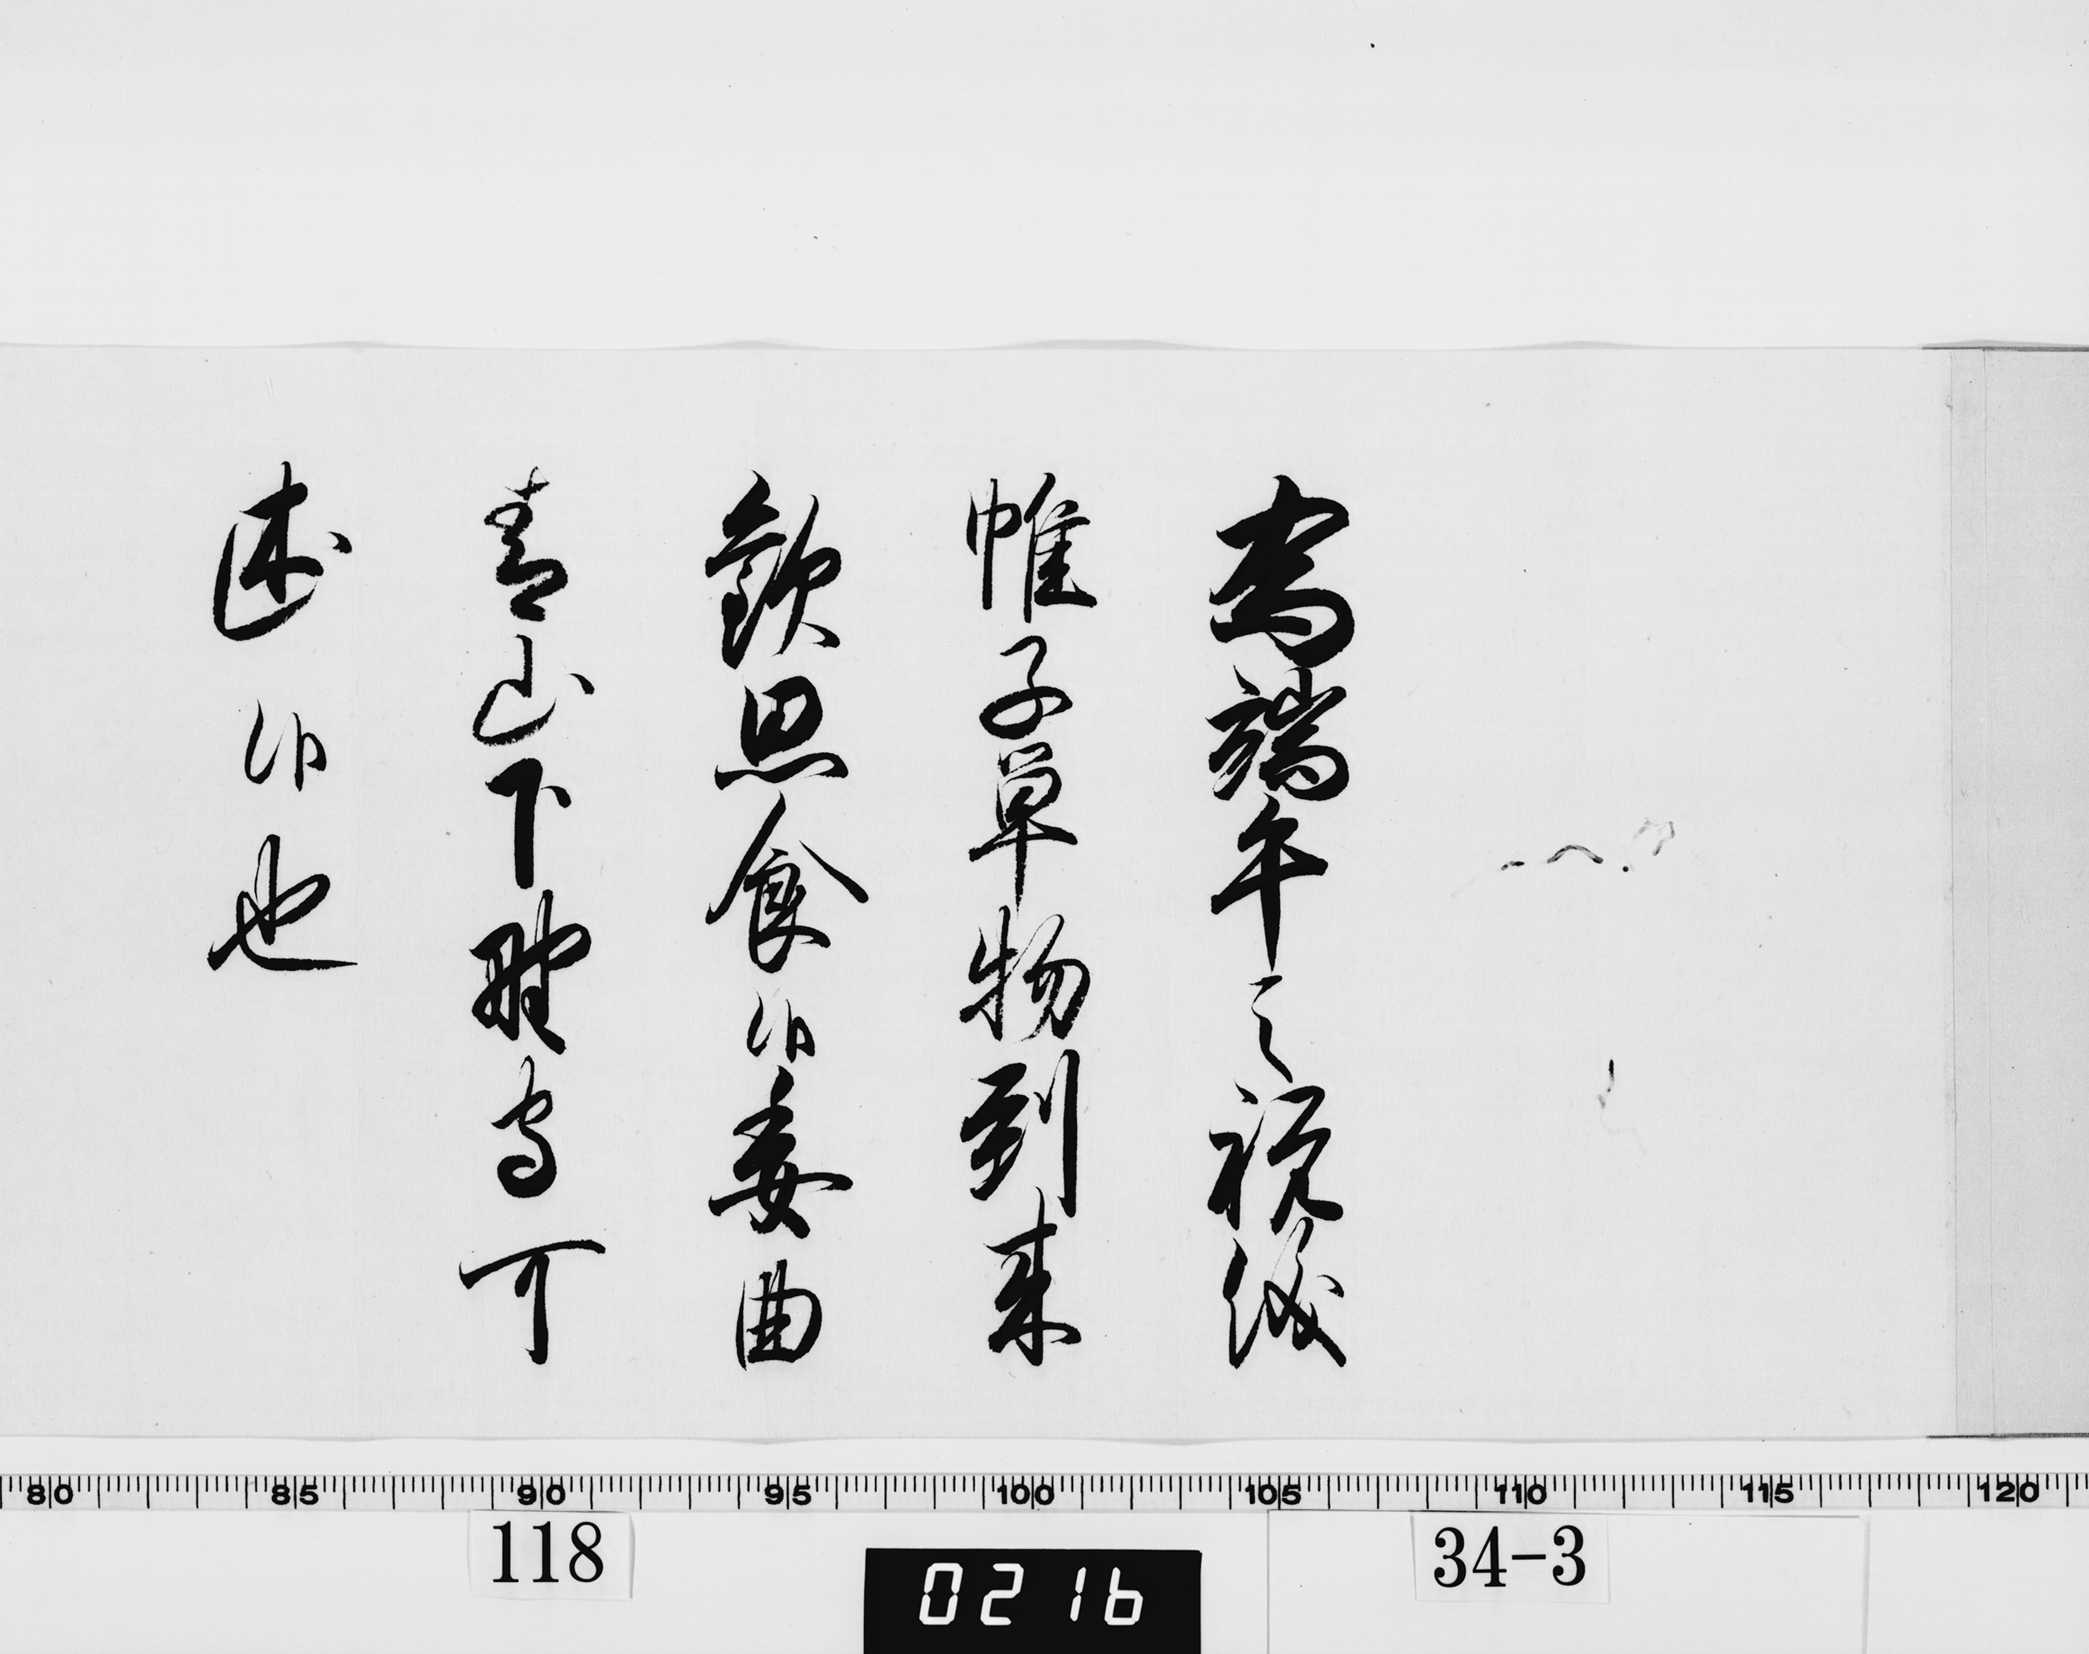 為端午之祝儀
帷子単物到来
歓思食候委曲
青山下野守可
述候也
80 85 90 95 100 105 110 115 120
118
0216
34-3